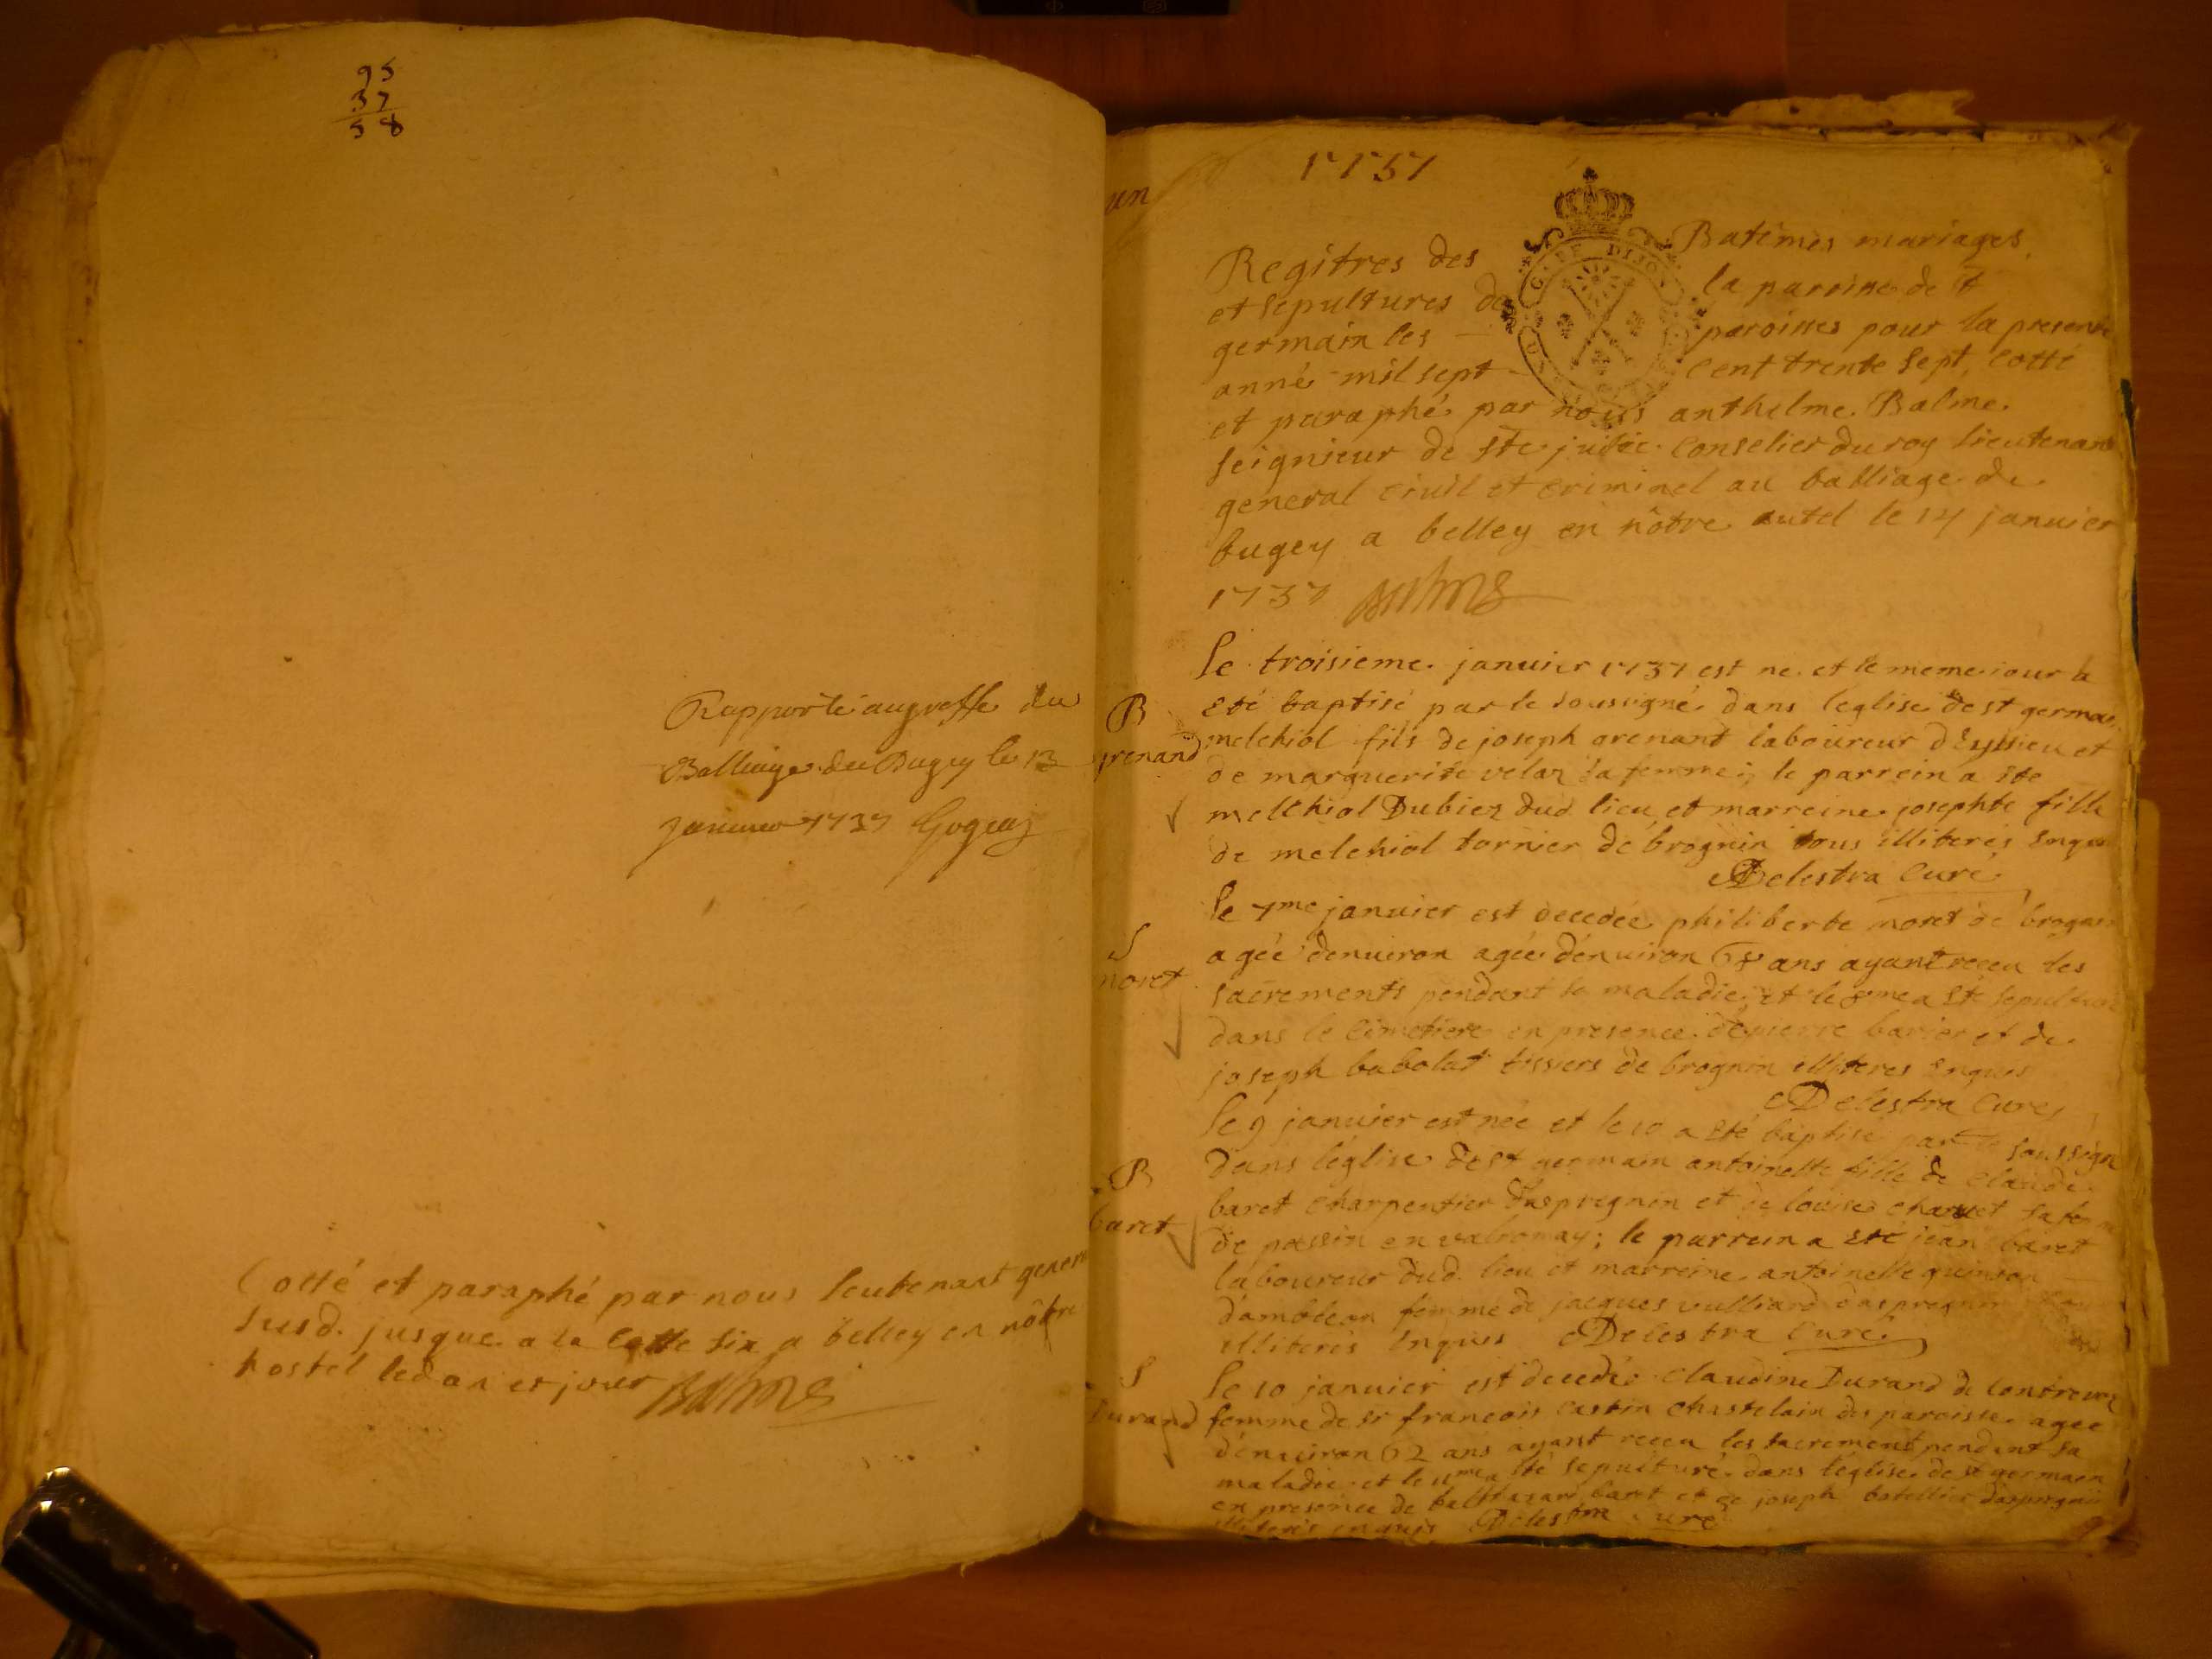 95
37
58
Rapporté au greffe du
Balliage du Bugey le 13
janvier 1737
Cotté et paraphé par nous leutenant gener
susd. jusque a la cotte six a belley en nôtre
hostel led an et jour Balme
un
1737
DIJON
Regitres des Batêmes mariages
et sepultures de la paroisse de st
germain les paroisses pour la presente
année mil sept cent trente sept, cotté
et paraphé par nous anthelme Balme
seignieur de ste julie conselier du roy lieutenant
general civil et criminel au balliage de
bugey a belley en nôtre autel le 14 janvier
1737 Balme
B
grenand
le troisieme janvier 1737 est ne et le meme jour a
eté baptisé par le sousigné dans leglise de st germai
melchiol fils de joseph grenant laboureur et
de marguerite velaz sa femme; le parrein a ete
melchiol Dubiez dud lieu et marreine josephte fille
de melchiol tornier de brognin tous illiterés enquis
Delestra Curé
S
moret
le 7me janvier est decedée philiberte moret de brogni
agée denuiron agée dénuiron 68 ans ayant receu les
sacrements pendant sa maladie, et le 8me a eté sepulturé
dans le cimetiere en presence de pierre barier et de
joseph babolat tissiers de brognin illiteres enquis
Delestra Curé
B
baret
le 9 janvier est née et le 10 a eté baptisé par le soussigné
dans léglise de st germain antoinette fille de claude
baret charpentier daspregnin et de louise charvet sa fem
de passin en valromay; le parrein a eté jean baret
laboureur dud. lieu et marreine antoinette quinson
dambléon femme de jacques vulliard daspregnin
illiterés enquis Delestra Curé
S
Durand
le 10 janvier est decedée Claudine Durand de
femme de sr francois castin chastelain des paroisse agee
dénuiron 62 ans ayant receu les sacrement pendant sa
maladie et le 11me a eté sepulturé dans léglise de st germain
en presence de balthazar baret et de joseph batellier daspregnin
illiterés enquis Delestra Curé